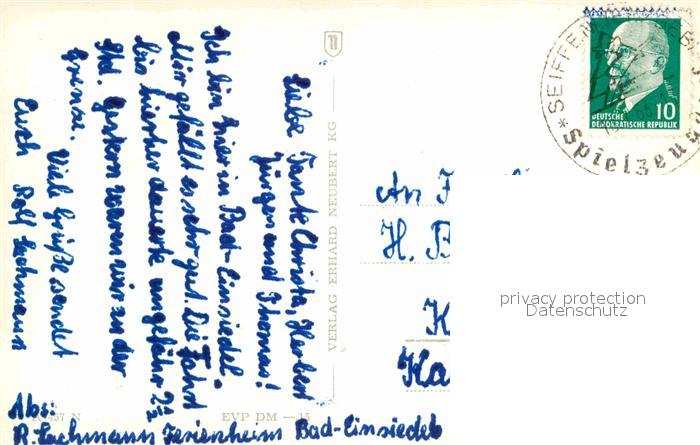 Liebe Tante Christa, Herbert
Jürgen und Thomas!
Ich bin hier in Bad-Einsiedel.
Mir gefällt es sehr gut. Die Fahrt
bis hierher dauerte ungefähr 2½
Std. Gestern waren wir an der
Grenze.
Viele Grüße sendet
Euch Rolf Lachmann
Abs:
R. Lachmann Ferienheim Bad-Einsiedel
VERLAG ERHARD NEUBERT KG
EVP DM — 15
SEIFFEN
Spielzeug
10
DEUTSCHE
DEMOKRATISCHE REPUBLIK
An F
H. B
K
Ka
privacy protection
Datenschutz